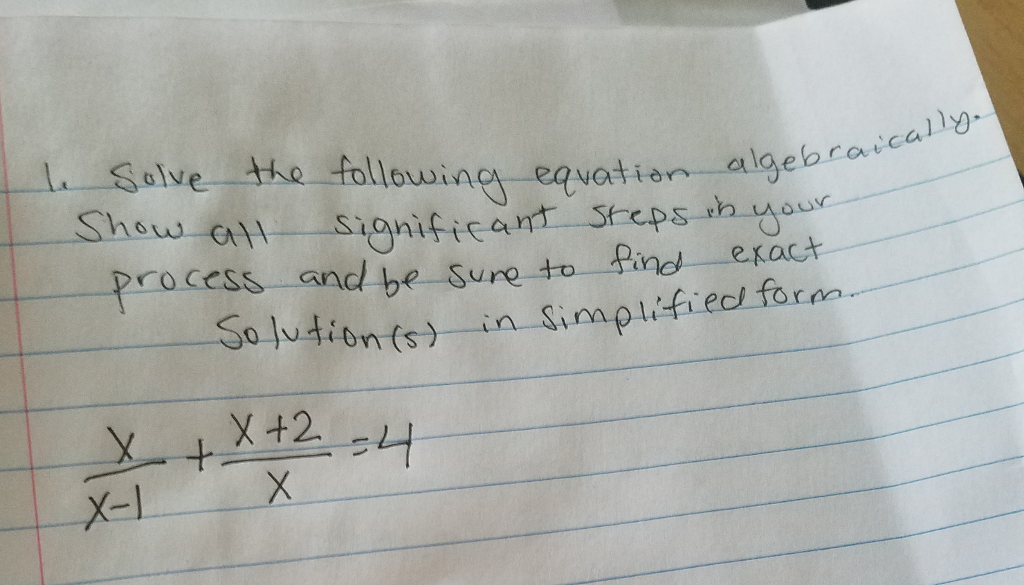 1. Solve the following equation algebraically.
Show all significant steps in your
process and be sure to find exact
Solution(s) in simplified form.
x/(x-1) + (x+2)/x = 4